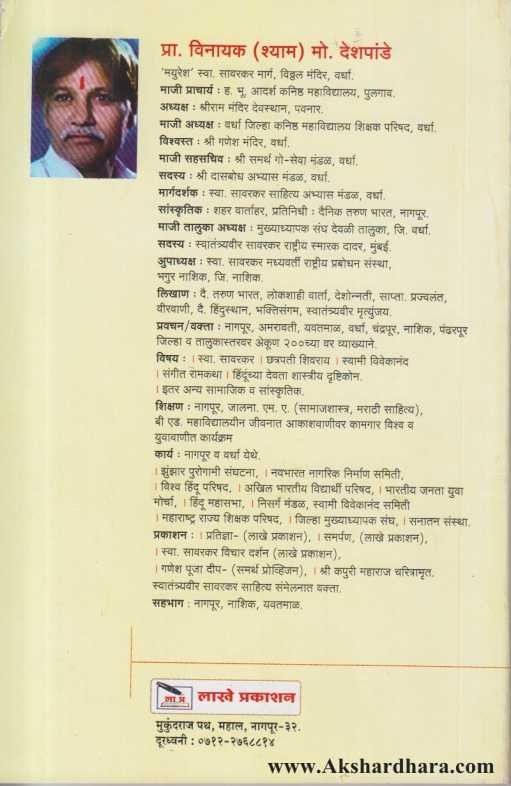 प्रा. विनायक (श्याम) मो. देशपांडे
'मयुरेश' स्वा. सावरकर मार्ग, विठ्ठल मंदिर, वर्धा.
माजी प्राचार्य : ह. भू. आदर्श कनिष्ठ महाविद्यालय, पुलगाव.
अध्यक्ष : श्रीराम मंदिर देवस्थान, पवनार.
माजी अध्यक्ष : वर्धा जिल्हा कनिष्ठ महाविद्यालय शिक्षक परिषद, वर्धा.
विश्वस्त : श्री गणेश मंदिर, वर्धा.
माजी सहसचिव : श्री समर्थ गो-सेवा मंडळ, वर्धा.
सदस्य : श्री दासबोध अभ्यास मंडळ, वर्धा.
मार्गदर्शक : स्वा. सावरकर साहित्य अभ्यास मंडळ, वर्धा.
सांस्कृतिक : शहर वार्ताहर, प्रतिनिधी : दैनिक तरुण भारत, नागपूर.
माजी तालुका अध्यक्ष : मुख्याध्यापक संघ देवळी तालुका, जि. वर्धा.
सदस्य : स्वातंत्र्यवीर सावरकर राष्ट्रीय स्मारक दादर, मुंबई.
अुपाध्यक्ष : स्वा. सावरकर मध्यवर्ती राष्ट्रीय प्रबोधन संस्था,
भगुर नाशिक, जि. नाशिक.
लिखाण : दै. तरुण भारत, लोकशाही वार्ता, देशोन्नती, साप्ता. प्रज्वलंत,
वीरवाणी, दै. हिंदुस्थान, भक्तिसंगम, स्वातंत्र्यवीर मृत्युंजय.
प्रवचन/वक्ता : नागपूर, अमरावती, यवतमाळ, वर्धा, चंद्रपूर, नाशिक, पंढरपूर
जिल्हा व तालुकास्तरवर अेकूण २००च्या वर व्याख्याने.
विषय : । स्वा. सावरकर । छत्रपती शिवराय । स्वामी विवेकानंद
। संगीत रामकथा । हिंदूंच्या देवता शास्त्रीय दृष्टिकोन.
। इतर अन्य सामाजिक व सांस्कृतिक.
शिक्षण : नागपूर, जालना. एम. ए. (सामाजशास्त्र, मराठी साहित्य),
बी एड. महाविद्यालयीन जीवनात आकाशवाणीवर कामगार विश्व व
युवावाणीत कार्यक्रम
कार्य : नागपूर व वर्धा येथे.
। झुंझार पुरोगामी संघटना, । नवभारत नागरिक निर्माण समिती,
। विश्व हिंदू परिषद, । अखिल भारतीय विद्यार्थी परिषद, । भारतीय जनता युवा
मोर्चा, । हिंदू महासभा, । निसर्ग मंडळ, स्वामी विवेकानंद समिती
। महाराष्ट्र राज्य शिक्षक परिषद, । जिल्हा मुख्याध्यापक संघ, । सनातन संस्था.
प्रकाशन : । प्रतिज्ञा- (लाखे प्रकाशन), । समर्पण, (लाखे प्रकाशन),
। स्वा. सावरकर विचार दर्शन (लाखे प्रकाशन),
। गणेश पूजा दीप- (समर्थ प्रोव्हिजन), । श्री कपुरी महाराज चरित्रामृत.
स्वातंत्र्यवीर सावरकर साहित्य संमेलनात वक्ता.
सहभाग : नागपूर, नाशिक, यवतमाळ.
ला प्र
लाखे प्रकाशन
मुकुंदराज पथ, महाल, नागपूर-३२.
दूरध्वनी : ०७१२-२७६८८१४
www.Akshardhara.com